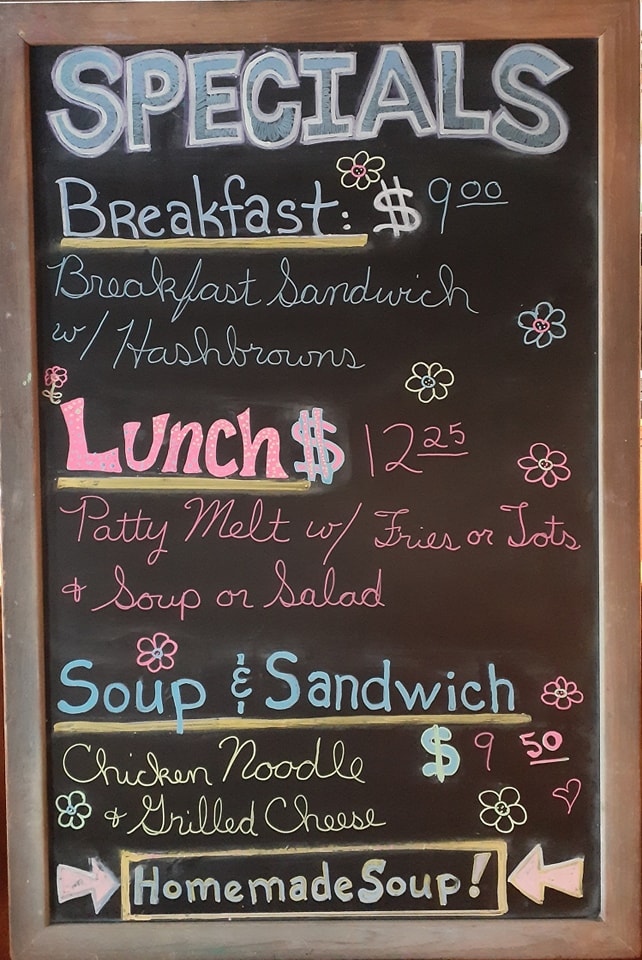 SPECIALS
Breakfast: $9.00
Breakfast Sandwich
w/ Hashbrowns
Lunch $12 25
Patty Melt w/ Fries or Tots
& Soup or Salad
Soup & Sandwich
Chicken Noodle $9 50
& Grilled Cheese
Homemade Soup!